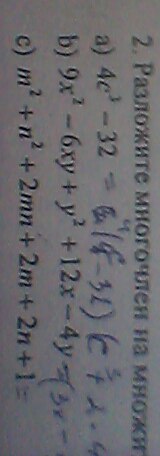 2. Разложите многочлен на множи
a) 4c³ - 32 =
b) 9x² - 6xy + y² + 12x - 4y = (3x -
c) m² + n² + 2mn + 2m + 2n + 1 =